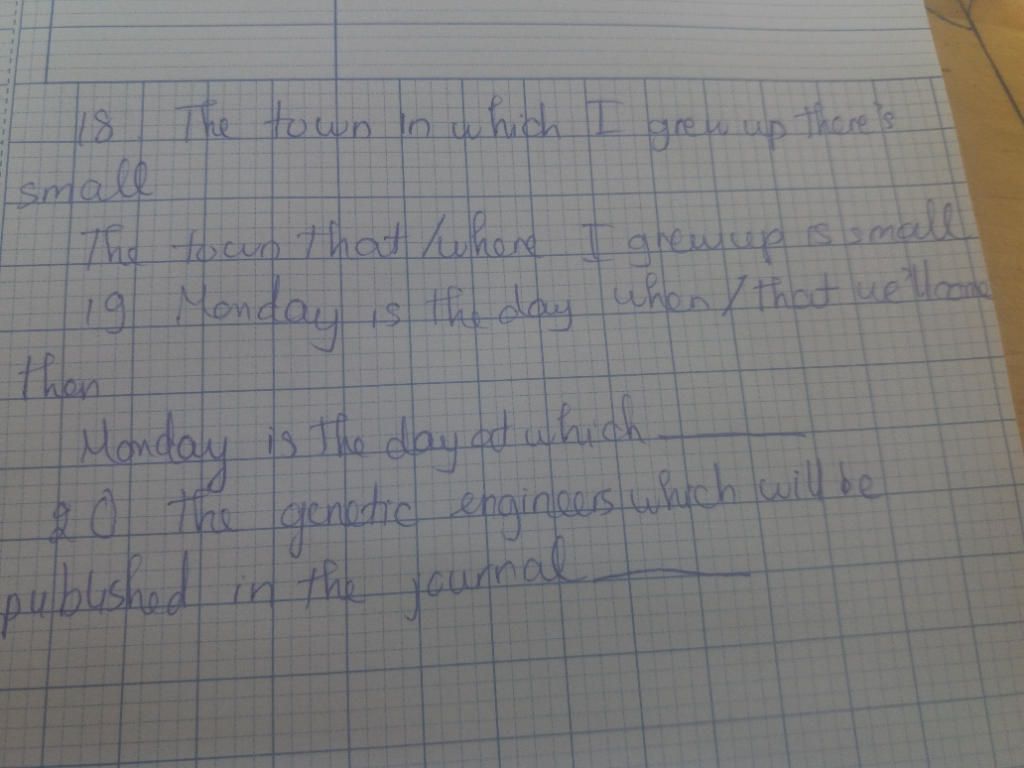 18 The town in which I grew up there's
small
The town that / where I grew up is small
19 Monday is the day when / that we'll come
then
Monday is the day at which
20 The genetic engineers which will be
published in the journal